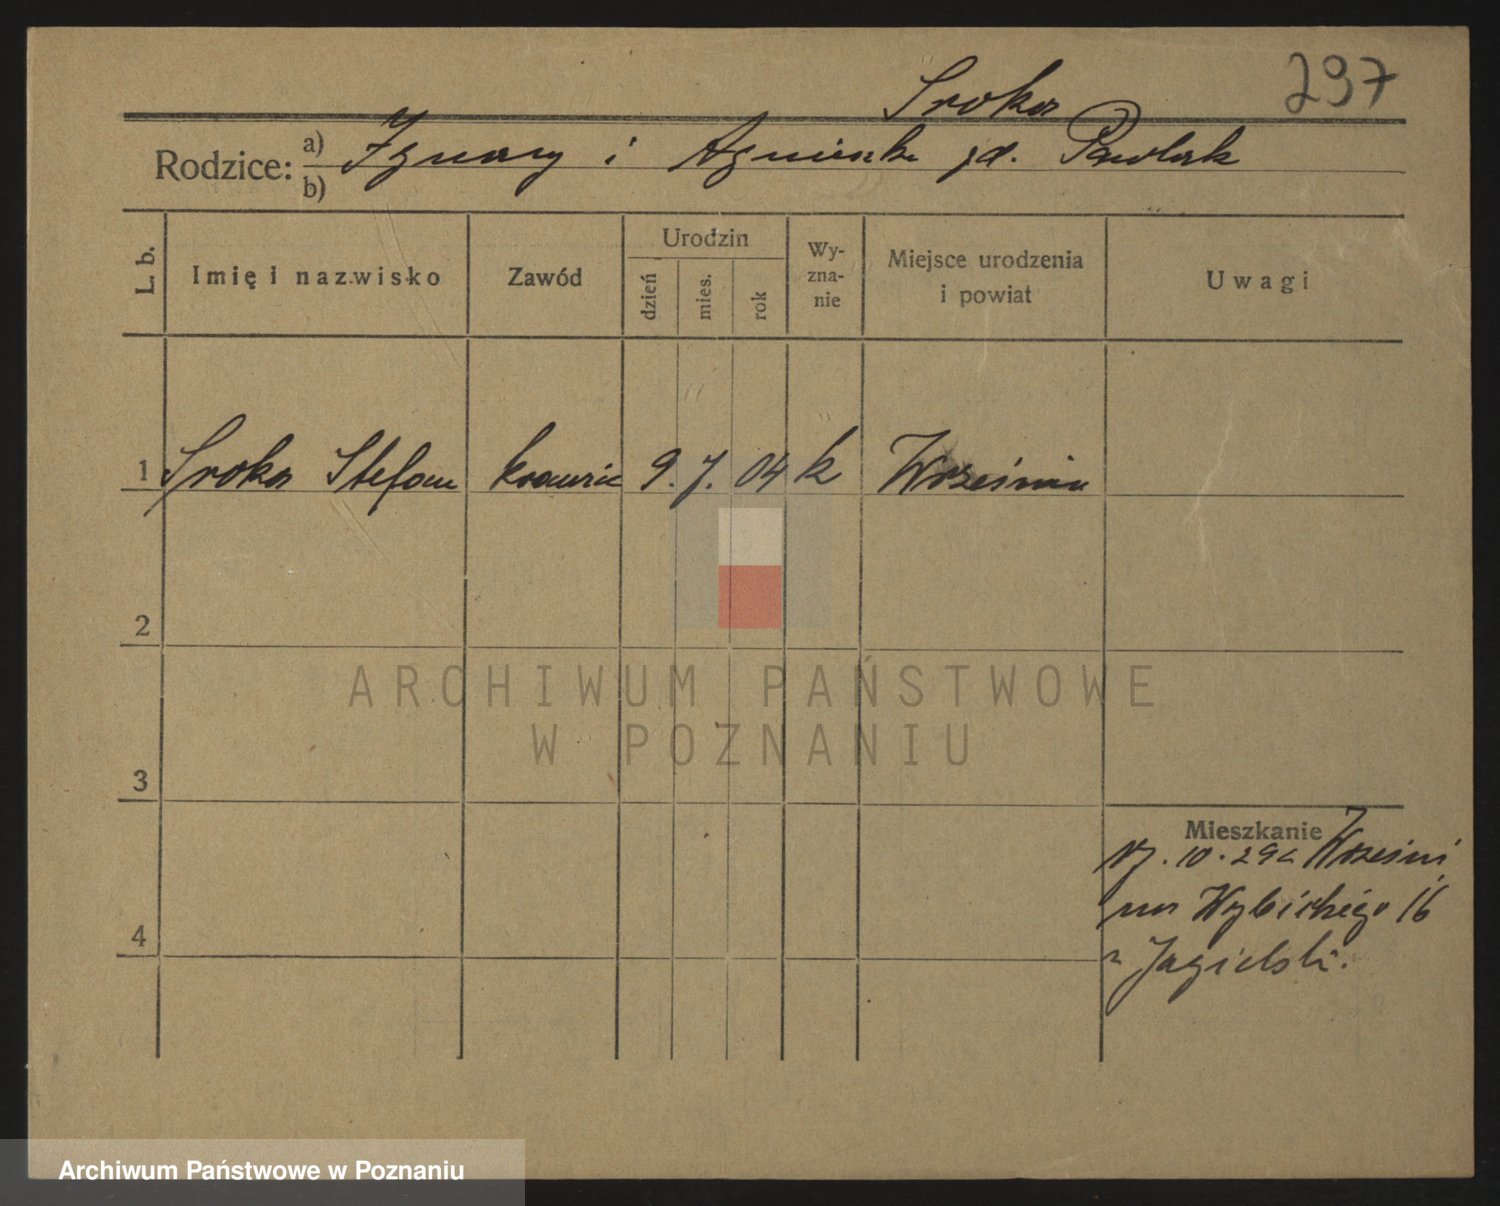 297
Sroka
Rodzice: a) Ignacy i Agnieszka zd. Pawlak
b)
L. b. Imię i nazwisko Zawód Urodzin dzień mies. rok Wy-zna-nie Miejsce urodzenia i powiat Uwagi
1 Sroka Stefan krawiec 9. 7. 04 k Września
2
3
4
Mieszkanie
10. 29 Wrześni
Wybickiego 16
Jagielski.
ARCHIWUM PAŃSTWOWE
W POZNANIU
Archiwum Państwowe w Poznaniu